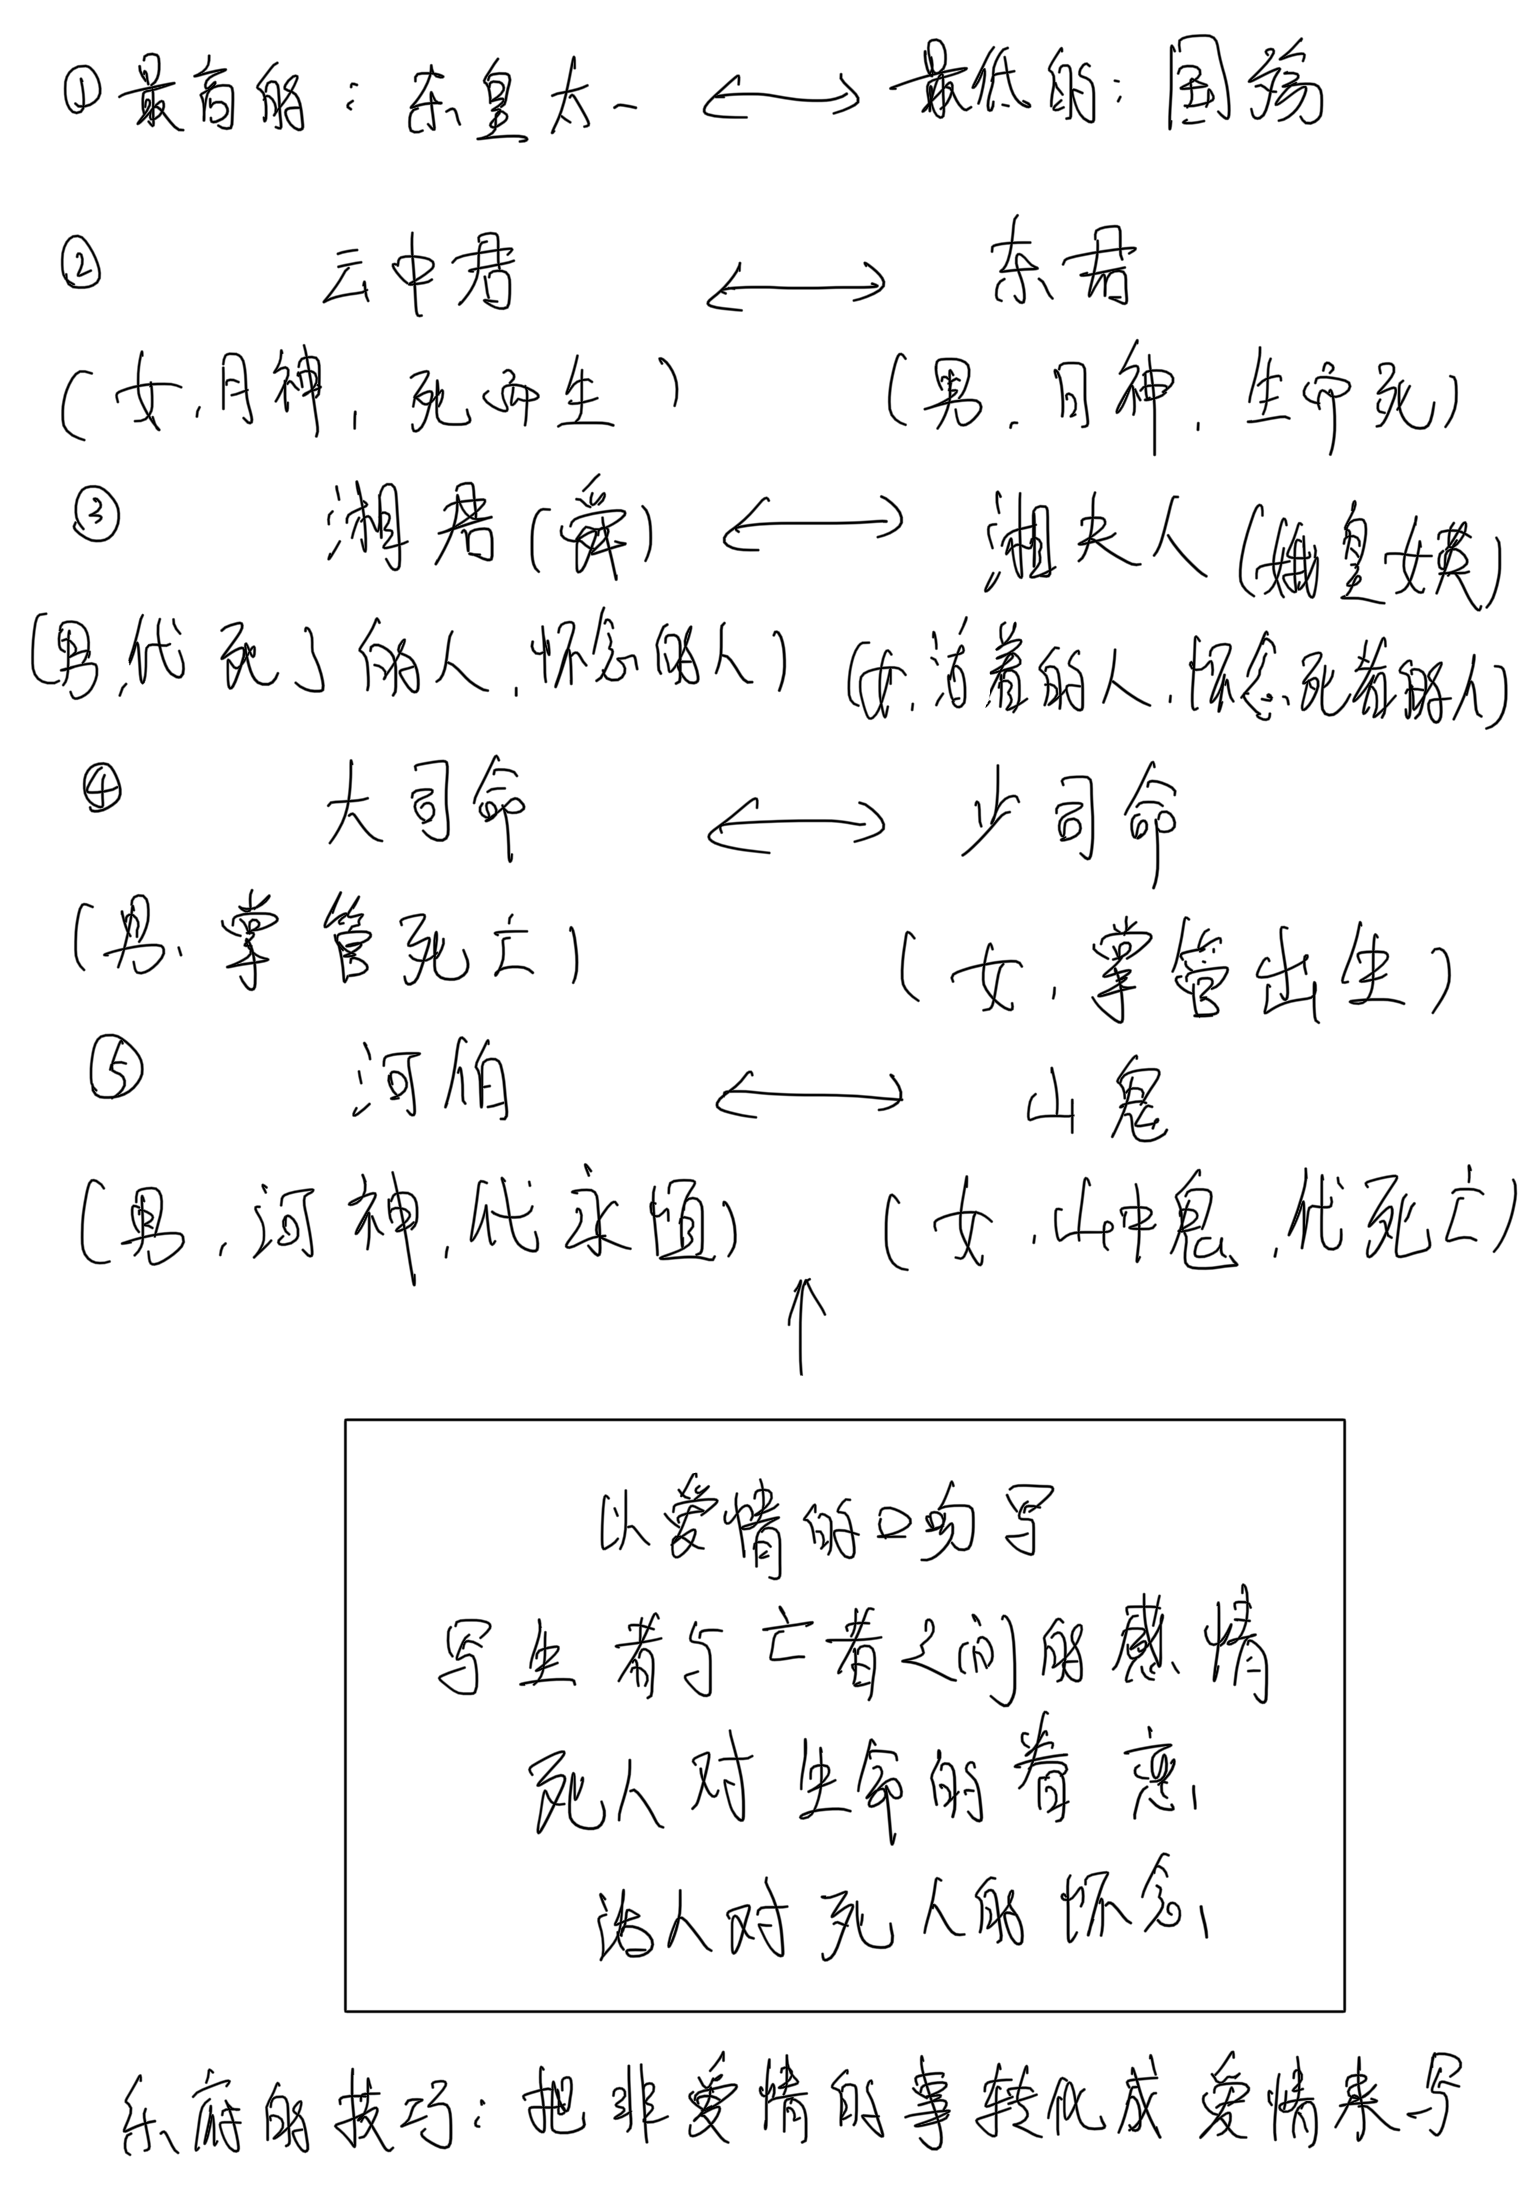 ①最高的：东皇太一 ⟷ 最低的：国殇
② 云中君 ⟷ 东君
（女，月神，死而生） （男，日神，生而死）
③ 湘君（舜） ⟷ 湘夫人（娥皇女英）
（男，代死了的人，怀念的人） （女，活着的人，怀念死者的人）
④ 大司命 ⟷ 少司命
（男，掌管死亡） （女，掌管出生）
⑤ 河伯 ⟷ 山鬼
（男，河神，代永恒） （女，山中鬼，代死亡）
↑
以爱情的口吻写
写生者与亡者之间的感情
死人对生命的眷恋，
活人对死人的怀念，
乐府的技巧：把非爱情的事转化成爱情来写